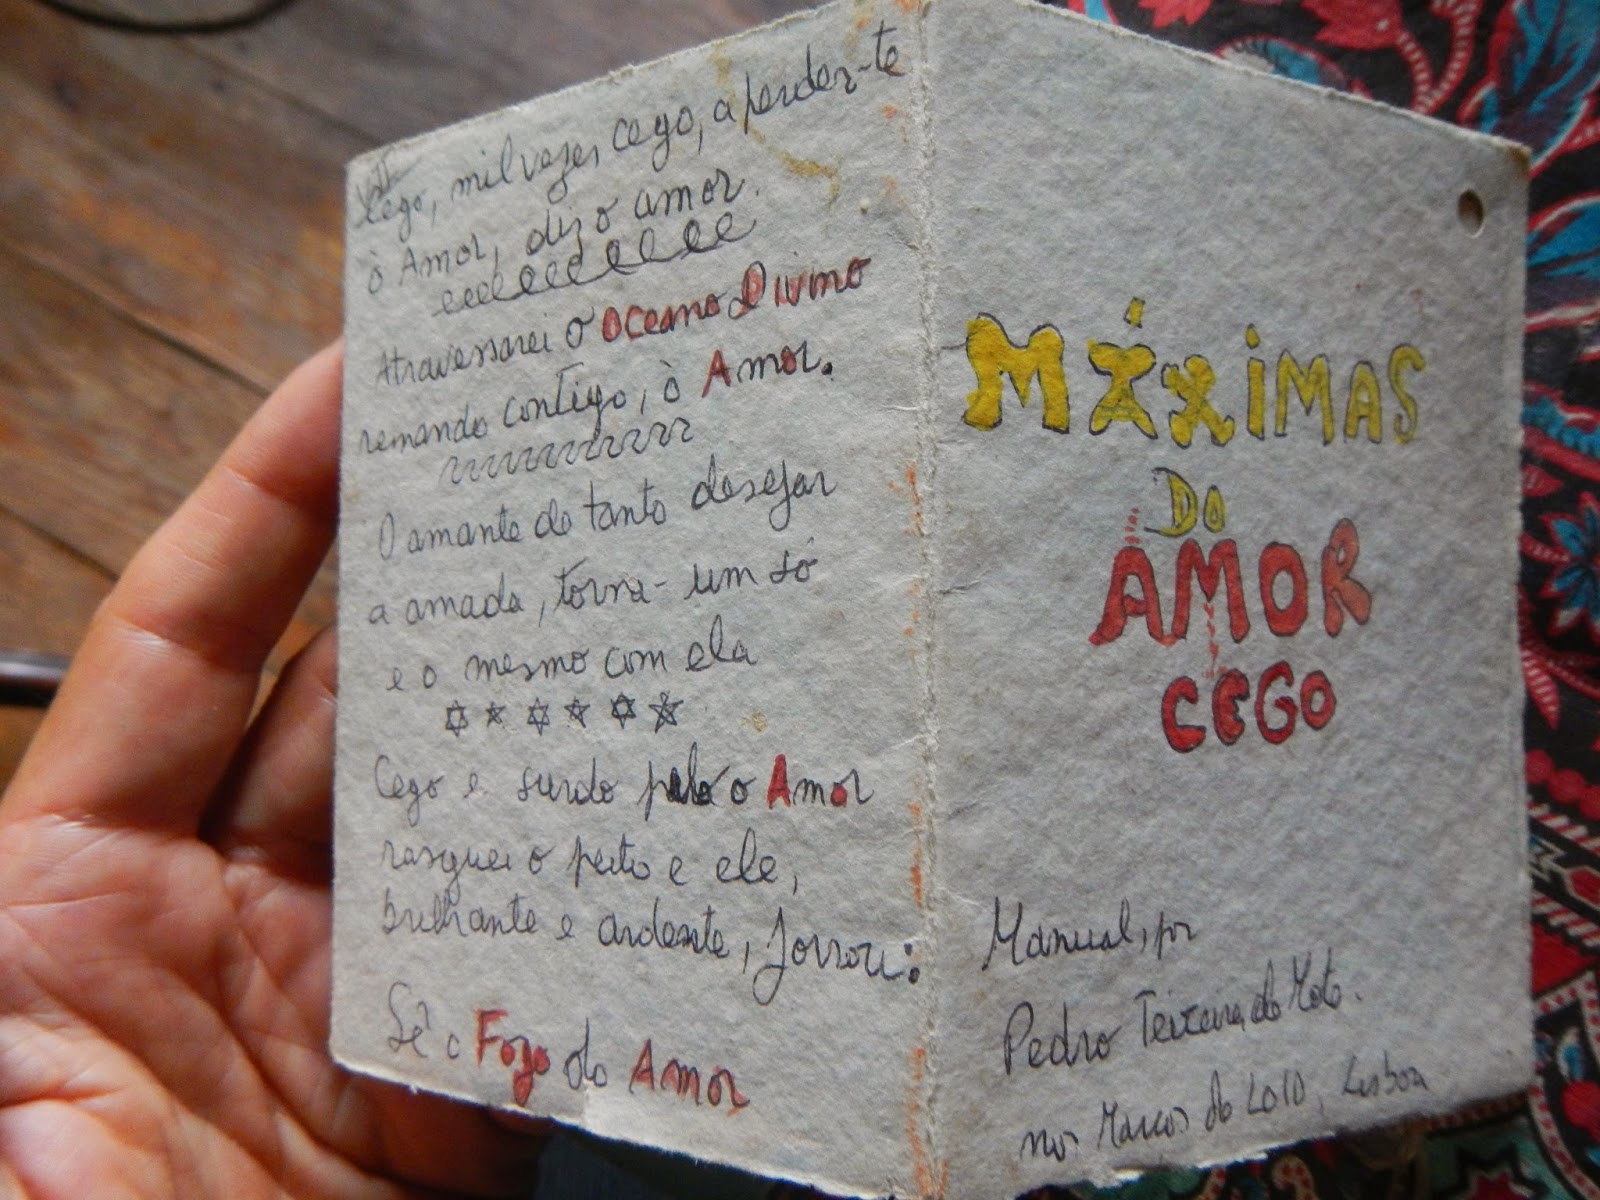 VII
Cego, mil vezes cego, a perder-te
ò Amor, diz o amor.
Atravessarei o Oceano Divino
remando contigo, ò Amor.
O amante de tanto desejar
a amada, torna- um só
e o mesmo com ela
Cego e surdo pelo o Amor
rasguei o peito e ele,
brilhante e ardente, jorrou:
Sê o Fogo do Amor
MÁXIMAS
DO
AMOR
CEGO
Manual, por
Pedro Teixeira da Mota.
nos Marcos de 2010, Lisboa